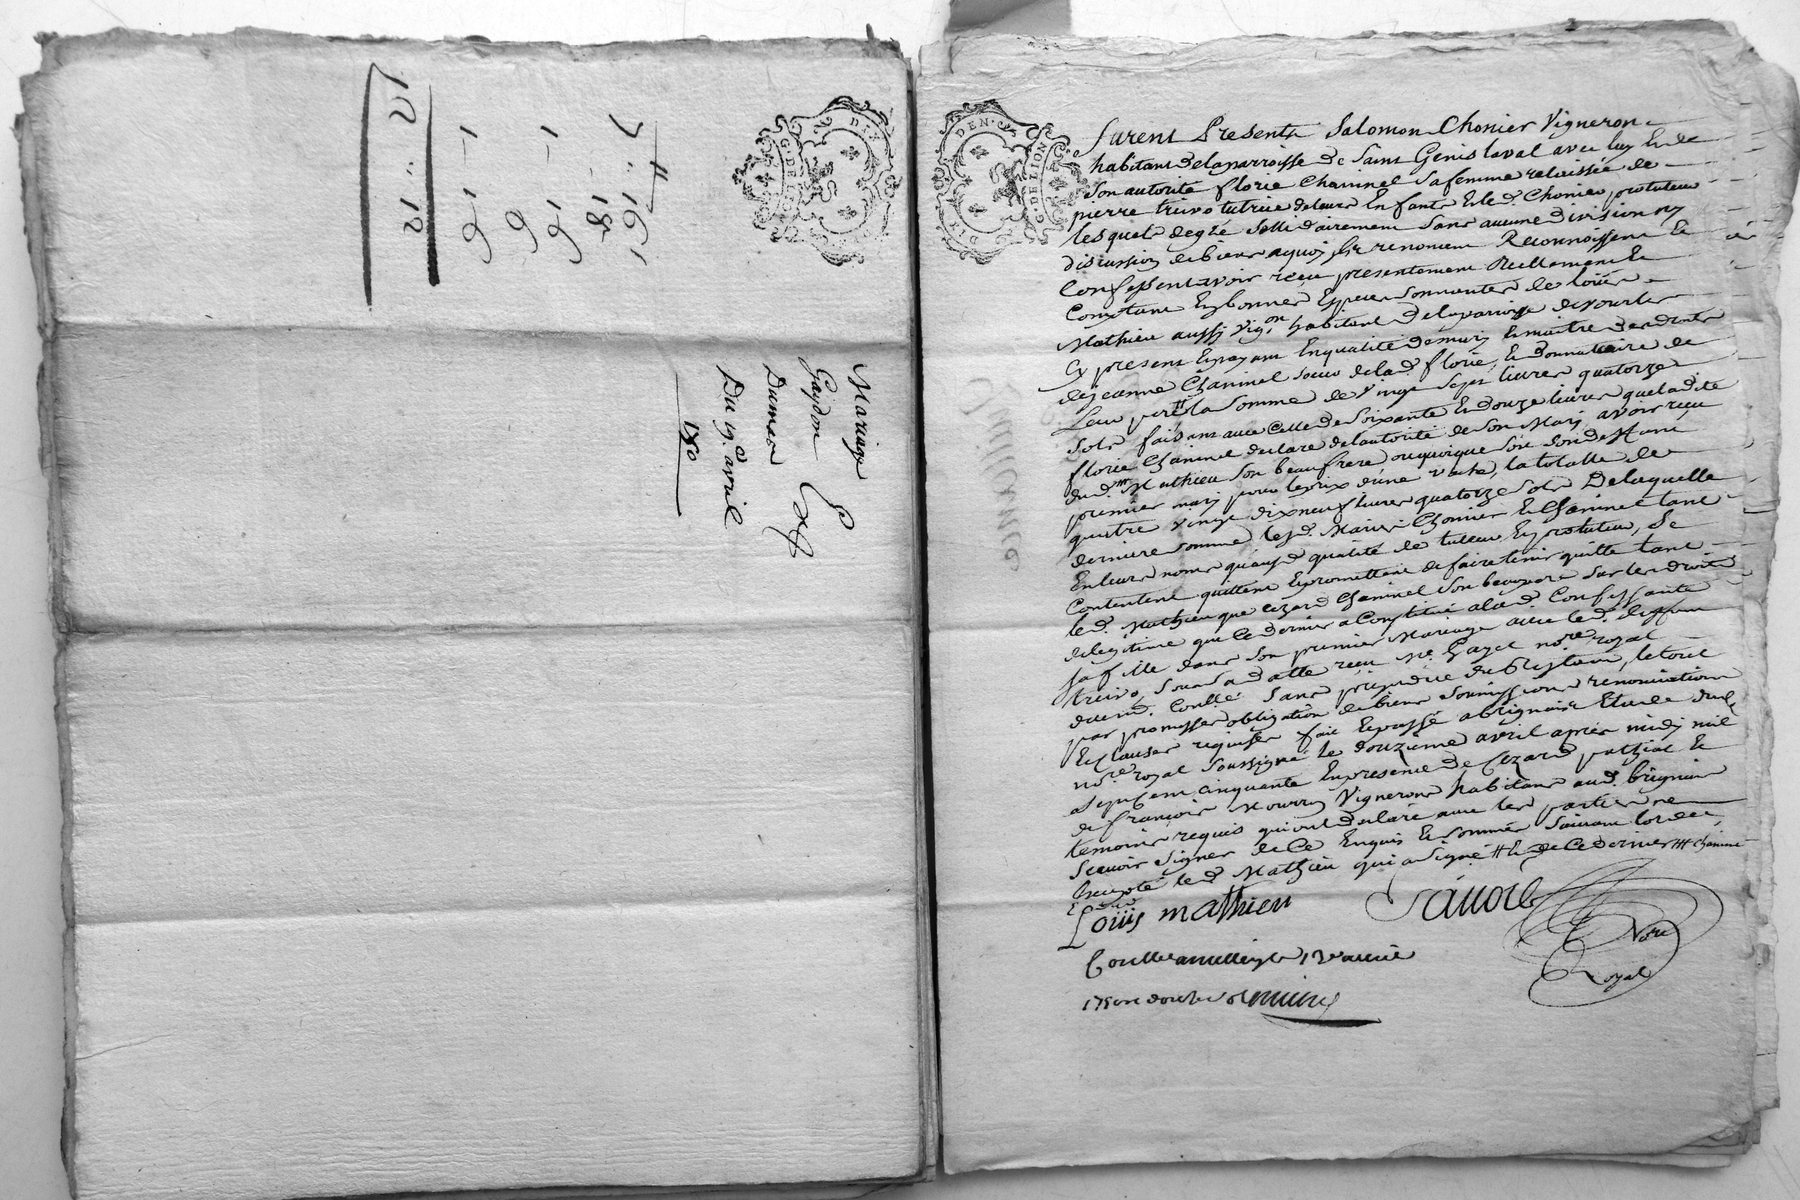 Mariage
Gaydon Et
Dumas
Du 19e avril
1750
12 :: 12
GEN. DE LION
DIX DEN.
GEN. DE LION
DIX DEN.
furent Presents Salomon Chonier Vigneron
habitant de la parroisse de Saint Genis laval avec luy Et de
Son autorité florie Chaninel Sa femme relaissée de
pierre trivo tutrice de leurs Enfants Et led. Chonier protuteur
lesquels de gré Sollidairement Sans aucune division ny
discussion de biens a quoy ils renoncent Reconnoissent Et
Confessent avoir reçu presentement Reellement Et
Comptant En bonnes Especes Sonnantes de loüis
Mathieu aussy Vigon habitant de la parroisse de vourles
Cy present Et payant En qualité de mary Et maitre des droits
de jeanne Chaninel soeur de lad. florie, Et donnataire de
Leur pere # la Somme de Vingt Sept livres quatorze
Sols faisant avec Celle de Soixante Et douze livres que ladite
florie Chaninel declare de l'autorité de Son Mary avoir reçu
dud. Mathieu Son beaufrere, ou quoique soit son defunt
premier mary pour le prix d'une vache, la totalle de
quatre vingt dix neuf livres quatorze Sols De laquelle
derniere Somme lesd. Mariés Chonier Et Chaninel tant
En leurs noms qu'ausd. qualité de tuteur Et protuteur, Se
Contentent quittent Et promettent de faire tenir quitte tant
led. Mathieu que Cezard Chaninel Son beaupere Sur les droits
de legitime que Ce dernier a Constitué a lad. Confessante
Sa fille dans Son premier Mariage avec led. deffunt
trivo, Sous Sa datte reçu Me Gayet nore royal
Sans prejudice du Restant, le tout
par promesses obligation de biens Soumissions renonciations
Et Clauses requises fait Et passé a brignais Etude dud.
nore royal Soussigné le douzieme avril après midy mil
Sept Cent Cinquante En presence de Cezard pathiot Et
de françois Mourry Vignerons habitans aud. brignais
temoins requis qui ont declaré avec les parties ne
Scavoir Signer de Ce Enquis Et Sommés Suivant l'ordce
Excepté led. Mathieu qui a Signé # Et de Ce dernier ### Chaninel
Loüis mathieu Sauvre
Nore
Royal